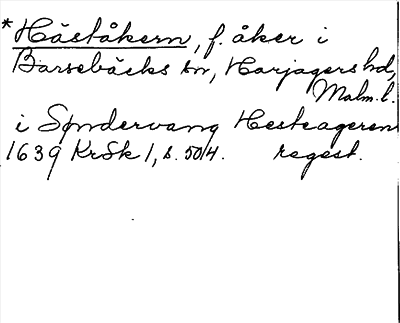 * Häståkern, f. åker i
Barsebäcks sn, Harjagers hd,
Malm. l.
i Søndervang Hesteageren
1639 KrSk 1, s. 504. regest.